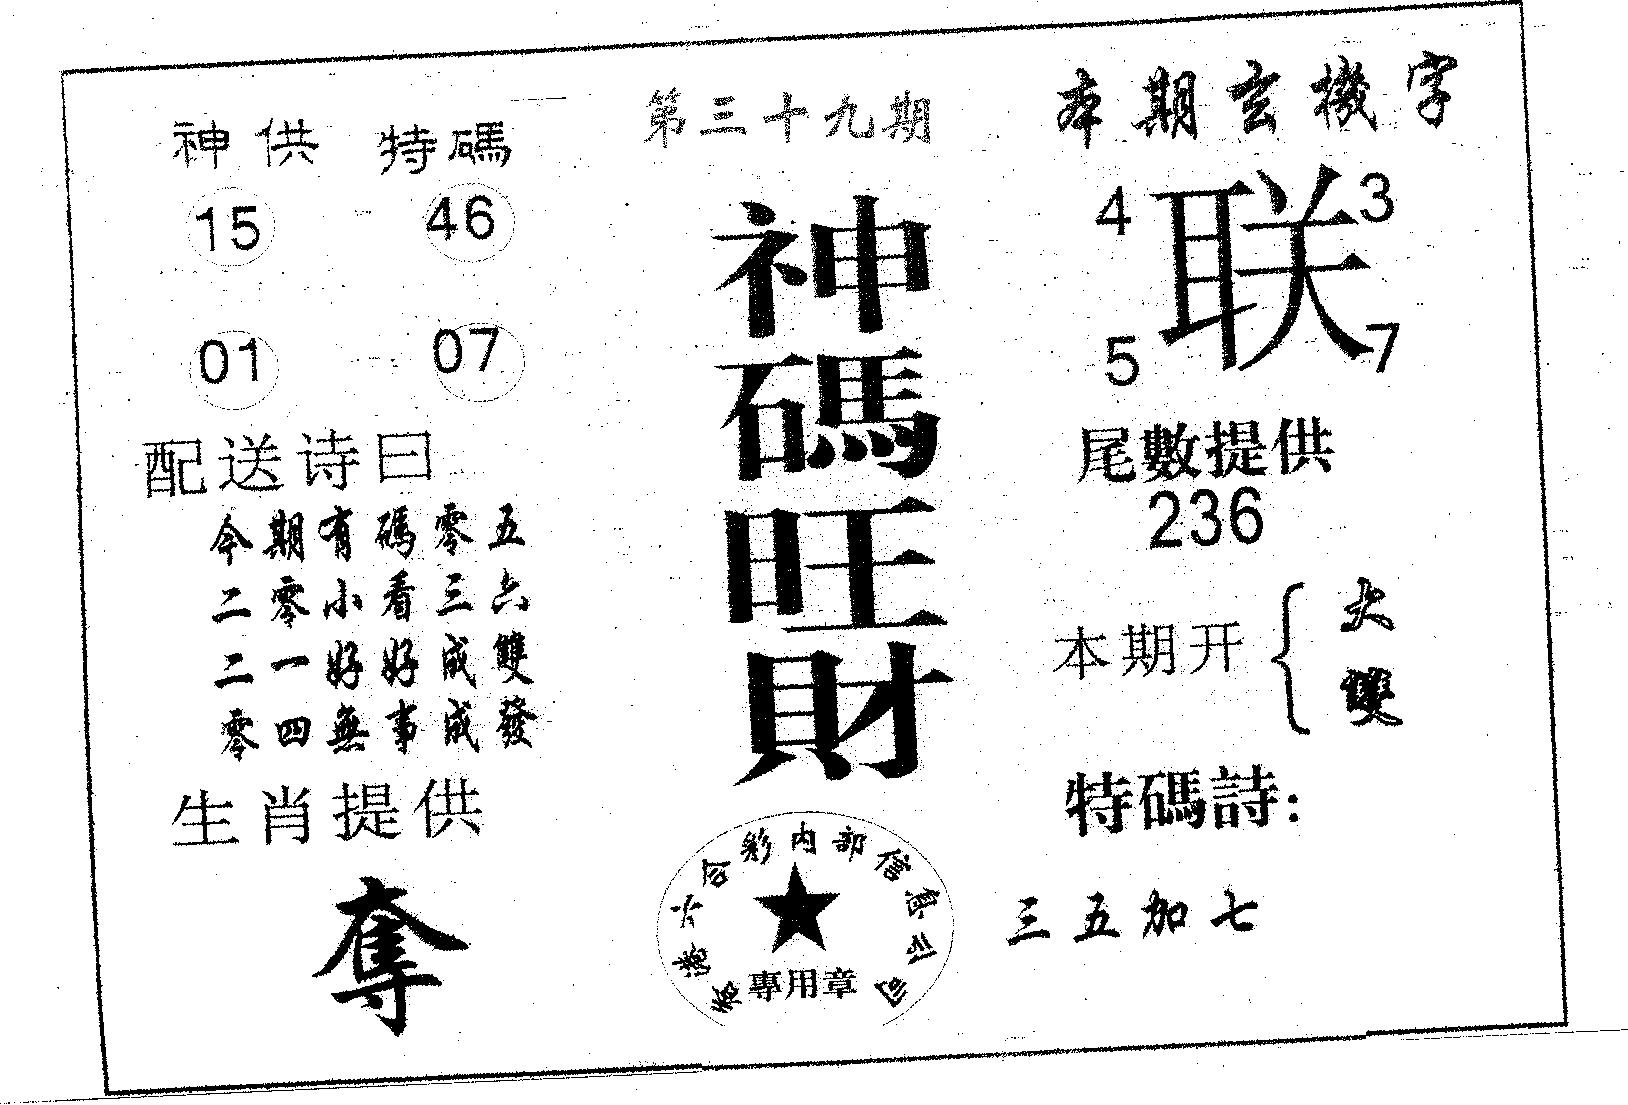 第三十九期
神碼旺財
神供 特碼
15 46
01 07
配送诗曰
今期有碼零五
二零小看三六
二一好好成雙
零四無事成發
生肖提供
奪
本期玄機字
4 3
联
5 7
尾數提供
236
本期开
大
雙
特碼詩:
三五加七
香港六合彩内部信息公司
專用章